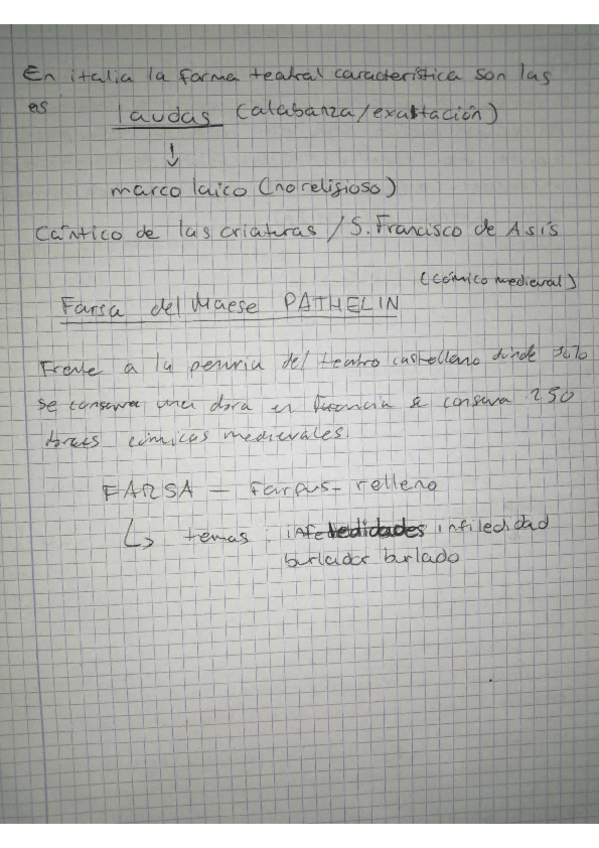 En italia la forma teatral característica son las
es laudas (alabanza/exaltación)
↓
marco laico (no religioso)
Cántico de las criaturas / S. Francisco de Asís
(cómico medieval)
Farsa del Maese PATHELIN
Frente a la penuria del teatro castellano donde solo
se conserva una obra en Francia se conserva 250
obras cómicas medievales.
FARSA — Farpus - relleno
↳ temas: infiledidad
burlador burlado